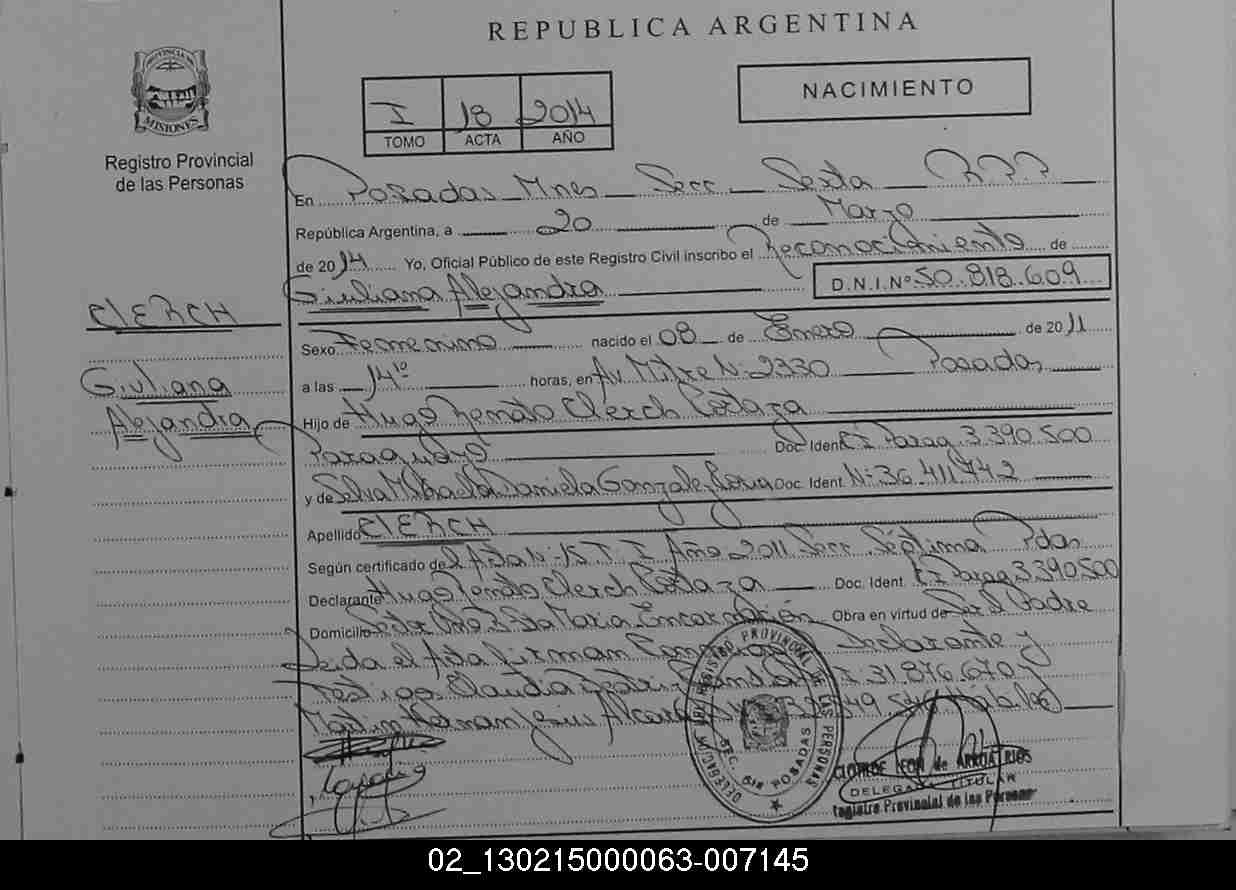 REPUBLICA ARGENTINA
PROVINCIA DE
MISIONES
Registro Provincial
de las Personas
I 18 2014
TOMO ACTA AÑO
NACIMIENTO
En Posadas Mnes Secc Sexta
República Argentina, a 20 de Marzo
de 2014 Yo, Oficial Público de este Registro Civil inscribo el Reconocimiento de
Giuliana Alejandra D.N.I.Nº 50.818.609
CLERCH
Giuliana
Alejandra
Sexo Femenino nacido el 08 de Enero de 2011
a las 14 horas, en Av. Mitre Nº 2330 Posadas
Hijo de Hugo Clerch
Paraguayo Doc. Ident. C.I. Parag 3.390.500
y de Daniela Doc. Ident. Nº 36.411.742
Apellido CLERCH
Según certificado del Acta Nº 15 T: I Año 2011 Secc Séptima Pdas
Declarante Hugo Clerch Doc. Ident. C.I. Parag 3.390.500
Domicilio Sta Maria Encarnación Obra en virtud de Ser el Padre
Leida el Acta firman Declarante y
Testigo Claudia 31.876.670 y
Jesus
DELEGACION DEL REGISTRO PROVINCIAL DE LAS PERSONAS
SEC. 6ta POSADAS
de
DELEGADA TITULAR
Registro Provincial de las Personas
02_130215000063-007145